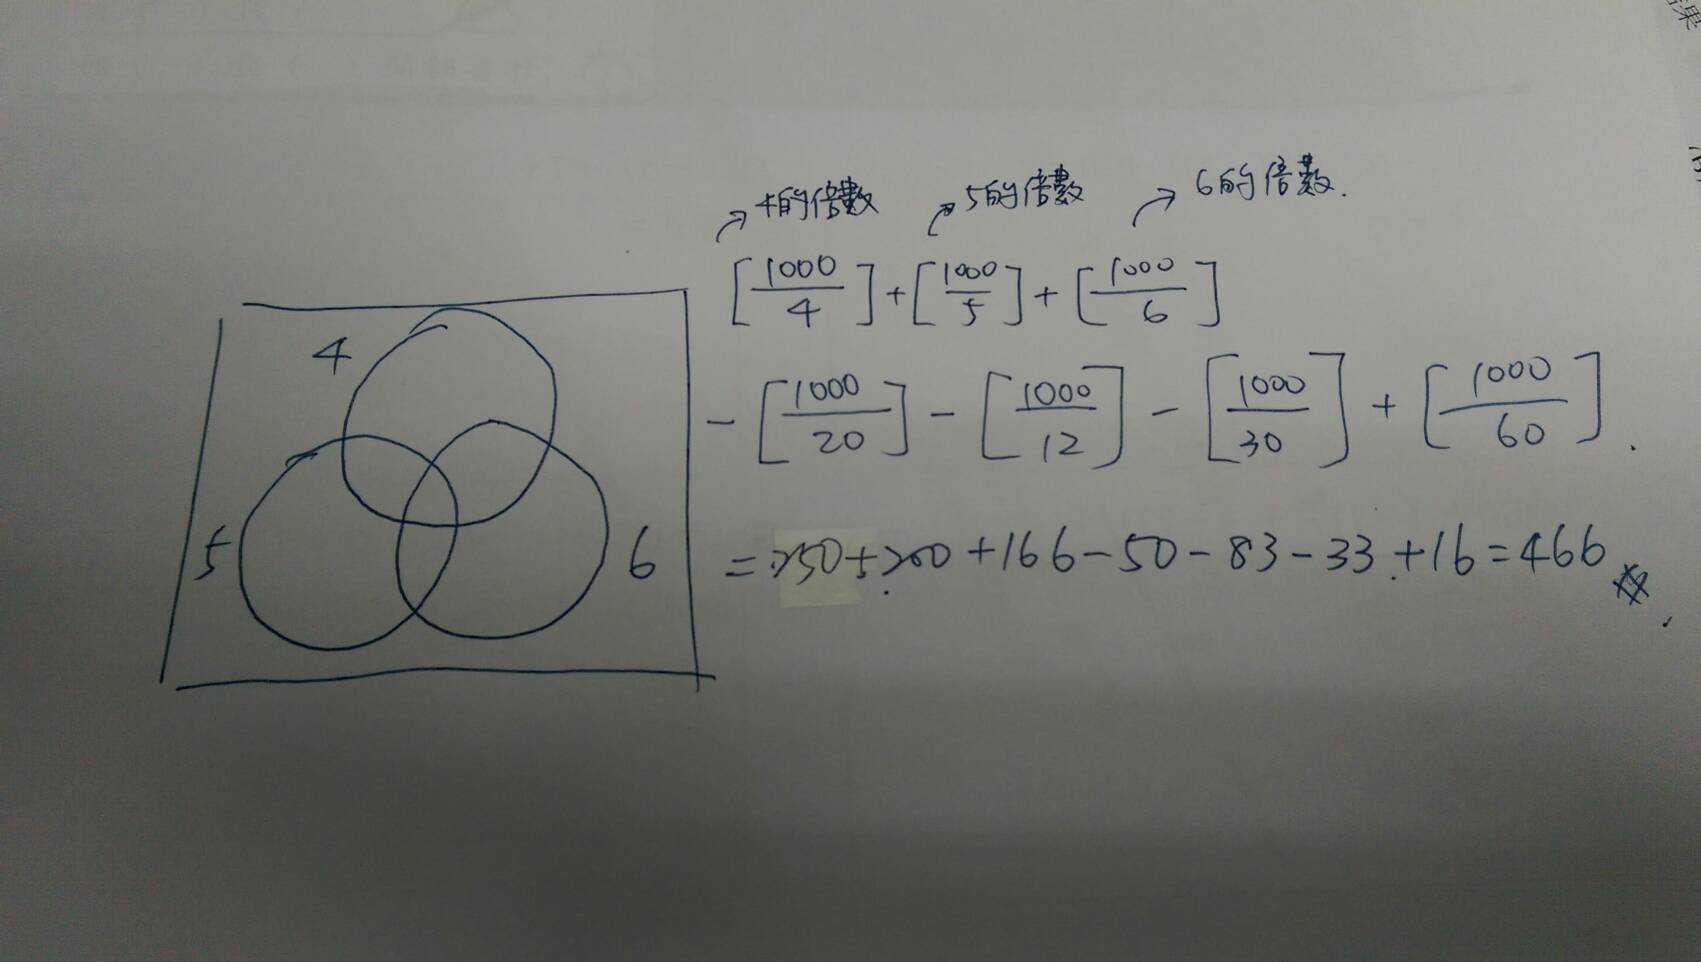 4的倍數 5的倍數 6的倍數.
[1000/4] + [1000/5] + [1000/6]
- [1000/20] - [1000/12] - [1000/30] + [1000/60].
= 250 + 200 + 166 - 50 - 83 - 33 + 16 = 466
4
5
6